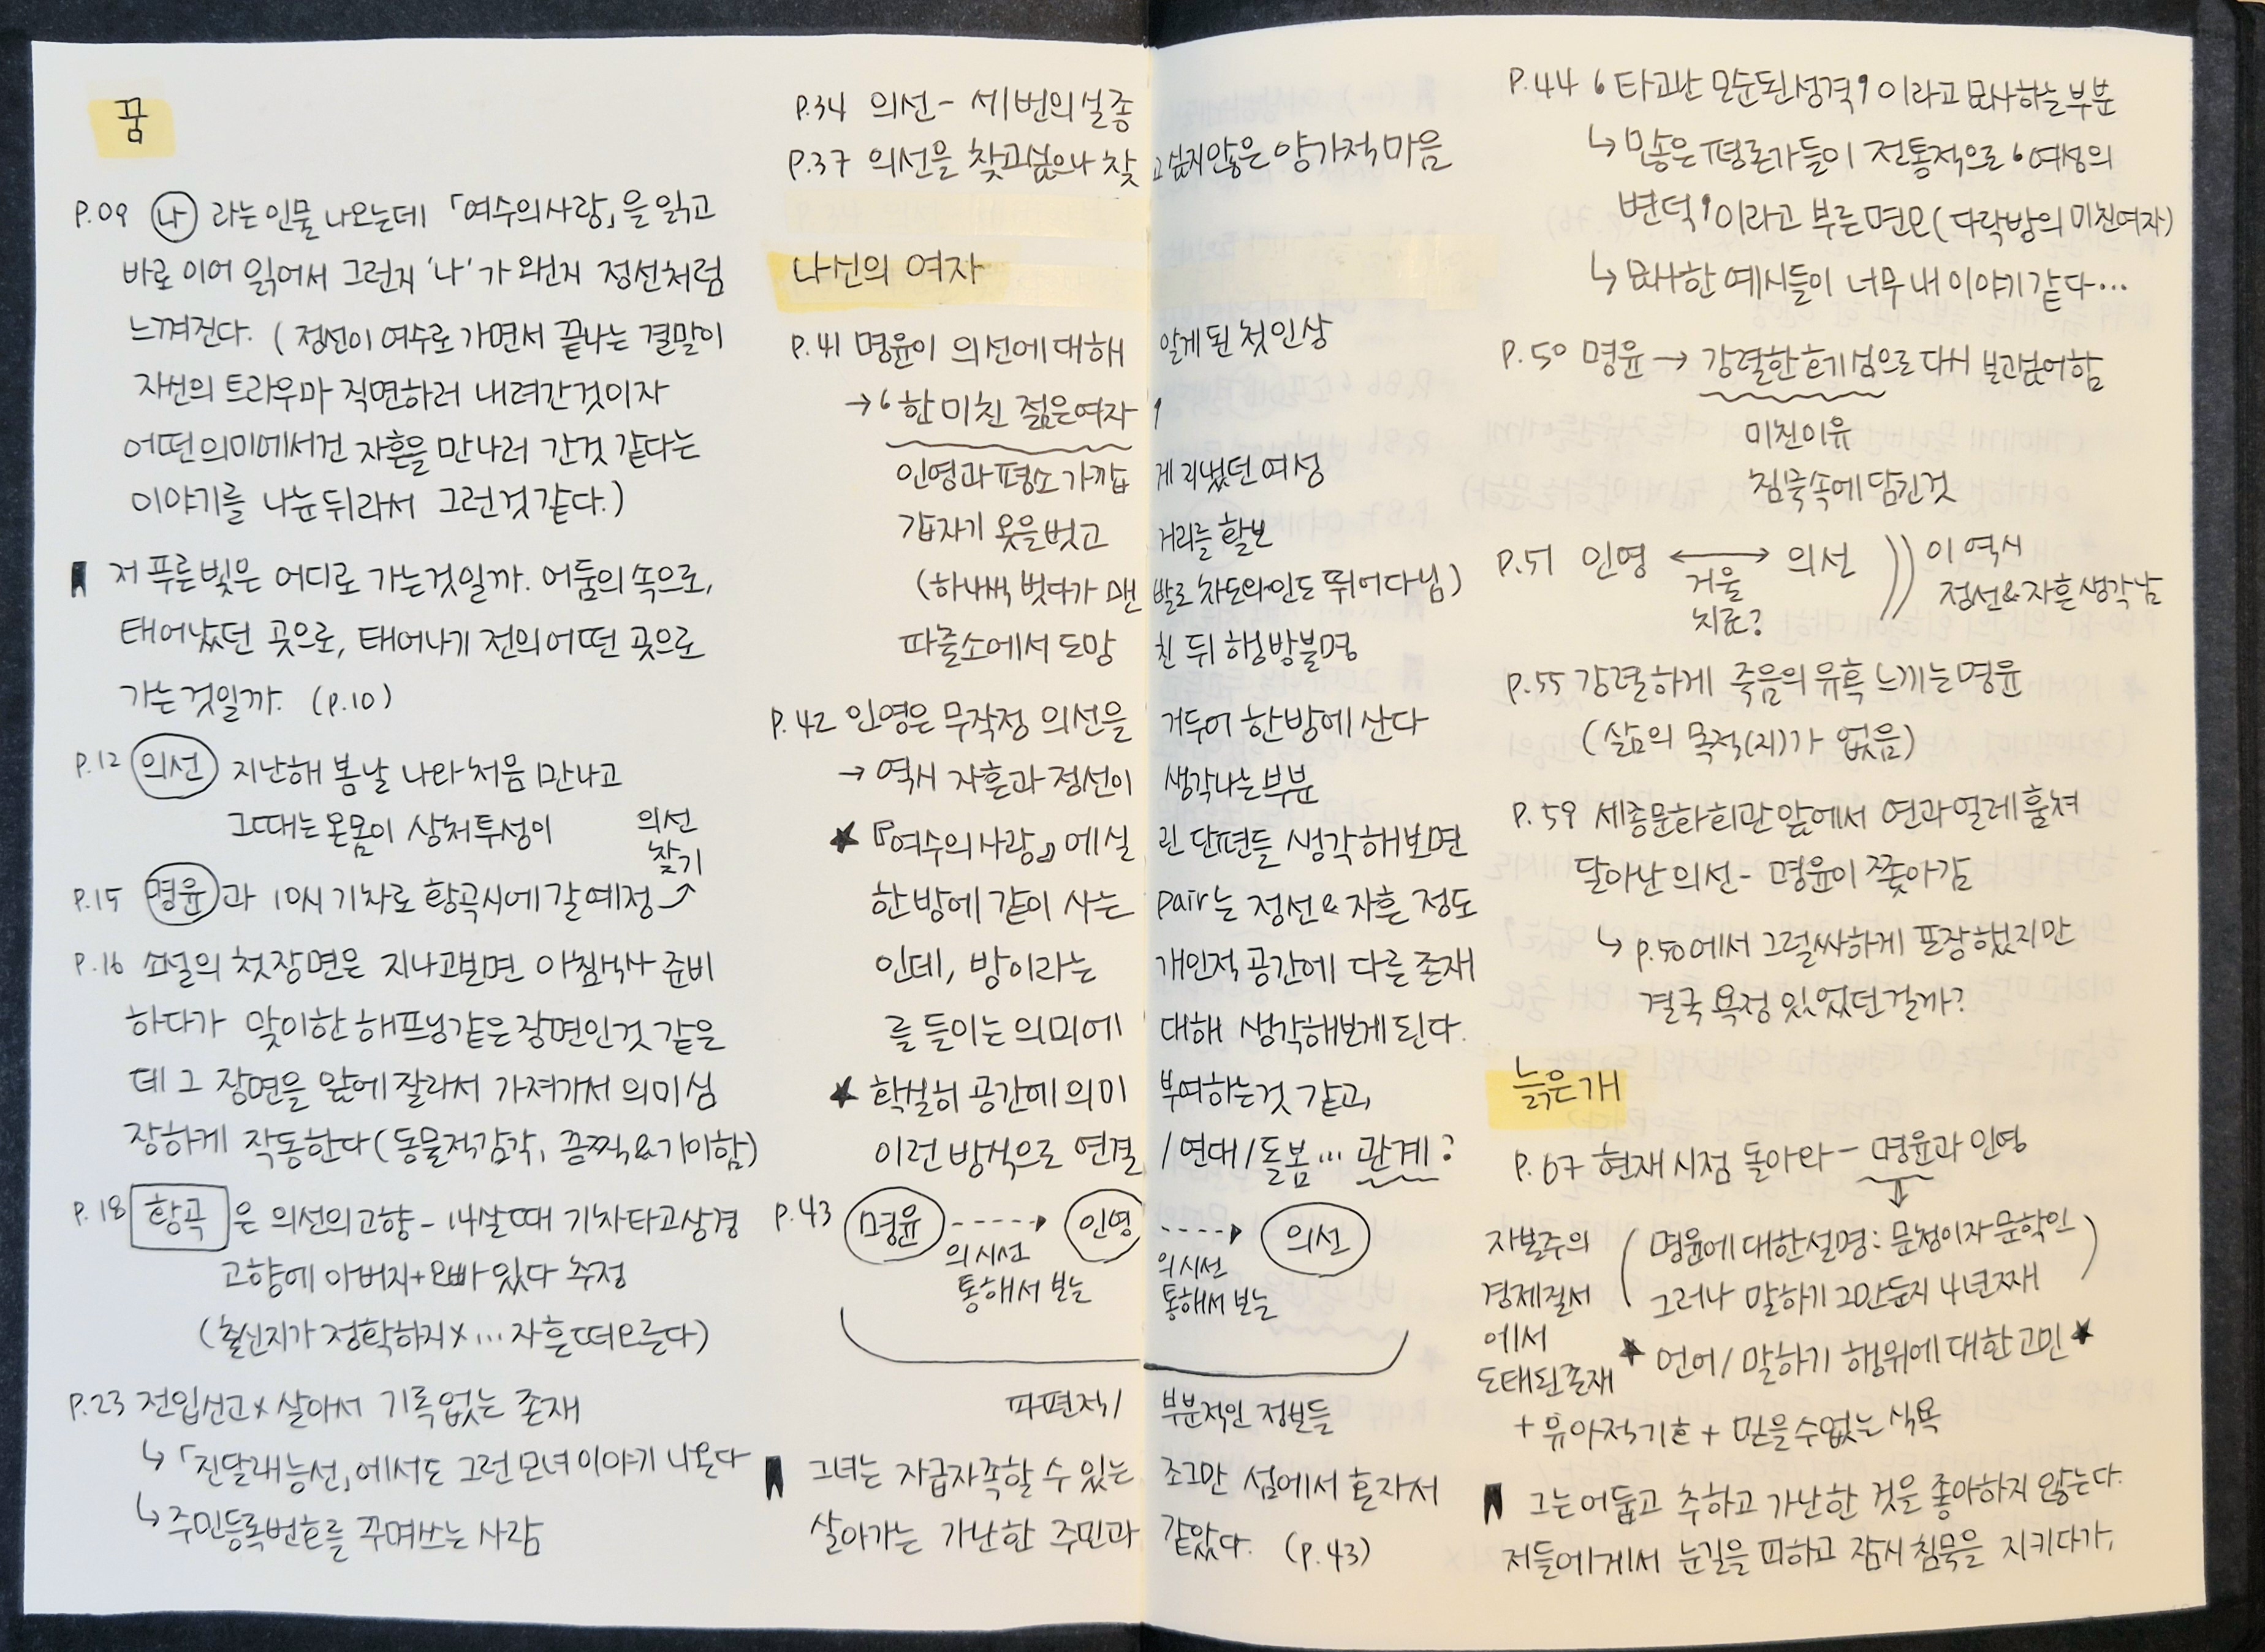 꿈
P.09 나 라는 인물 나오는데 「여수의 사랑」을 읽고
바로 이어 읽어서 그런지 '나'가 왠지 정선처럼
느껴진다. (정선이 여수로 가면서 끝나는 결말이
자신의 트라우마 직면하러 내려간것이자
어떤의미에서건 자흔을 만나러 간것 같다는
이야기를 나눈뒤라서 그런것같다.)
저 푸른빛은 어디로 가는것일까. 어둠의 속으로,
태어났던 곳으로, 태어나기 전의 어떤 곳으로
가는것일까. (p.10)
P.12 의선 지난해 봄날 나와 처음 만나고
그때는 온몸이 상처투성이
의선
찾기
P.15 명윤과 10시 기차로 황곡시에 갈 예정
P.16 소설의 첫장면은 지나고보면 아침식사 준비
하다가 맞이한 해프닝같은 장면인것 같은
데 그 장면을 앞에 잘라서 가져가서 의미심
장하게 작동한다(동물적감각, 끔찍&기이함)
P.18 황곡은 의선의 고향 - 14살때 기차타고 상경
고향에 아버지+오빠 있다 추정
(출신지가 정확하지x... 자흔 떠오른다)
P.23 전입신고x 살아서 기록없는 존재
↳「진달래능선」에서도 그런 모녀이야기 나온다
↳주민등록번호를 꾸며쓰는 사람
P.34 의선 - 세번의 실종
P.37 의선을 찾고싶으나 찾고 싶지않은 양가적 마음
나신의 여자
P.41 명윤이 의선에 대해 알게된 첫인상
→ '한 미친 젊은여자'
인영과 평소 가깝게 지냈던 여성
갑자기 옷을벗고 거리를 활보
(하나씩 벗다가 맨발로 차도와 인도 뛰어다님)
파출소에서 도망친 뒤 행방불명
P.42 인영은 무작정 의선을 거두어 한방에 산다
→ 역시 자흔과 정선이 생각나는부분
★ 『여수의사랑』에 실린 단편들 생각해보면
한방에 같이 사는 pair는 정선&자흔 정도
인데, 방이라는 개인적 공간에 다른 존재
를 들이는 의미에 대해 생각해보게된다.
★ 확실히 공간에 의미 부여하는것 같고,
이런 방식으로 연결/연대/돌봄... 관계?
P.43 명윤 ----→ 인영 ----→ 의선
의 시선 의 시선
통해서 보는 통해서 보는
파편적/부분적인 정보들
그녀는 자급자족할 수 있는 조그만 섬에서 혼자서
살아가는 가난한 주민과 같았다. (p.43)
P.44 '타고난 모순된성격'이라고 묘사하는 부분
↳ 많은 평론가들이 전통적으로 '여성의
변덕'이라고 부른 면모(다락방의 미친여자)
↳ 묘사한 예시들이 너무 내 이야기 같다...
P.50 명윤 → 강렬한호기심으로 다시 보고싶어함
미친이유
침묵속에 담긴것
P.51 인영 ↔ 의선 )) 이 역시
거울
치료?
정선&자흔 생각남
P.55 강렬하게 죽음의 유혹 느끼는 명윤
(삶의 목적(지)가 없음)
P.59 세종문화회관 앞에서 연과 얼레 훔쳐
달아난 의선 - 명윤이 쫓아감
↳ p.50에서 그럴싸하게 포장했지만
결국 욕정 있었던걸까?
늙은개
P.67 현재 시점 돌아와 - 명윤과 인영
자본주의
경제질서
에서
도태된존재
(명윤에 대한설명: 문청이자 문학인
그러나 말하기 그만둔지 4년째)
★ 언어/말하기 행위에 대한 고민 ★
+ 유아적기호 + 믿을수없는 식욕
그는 어둡고 추하고 가난한 것을 좋아하지 않는다.
저들에게서 눈길을 피하고 잠시 침묵을 지키다가,